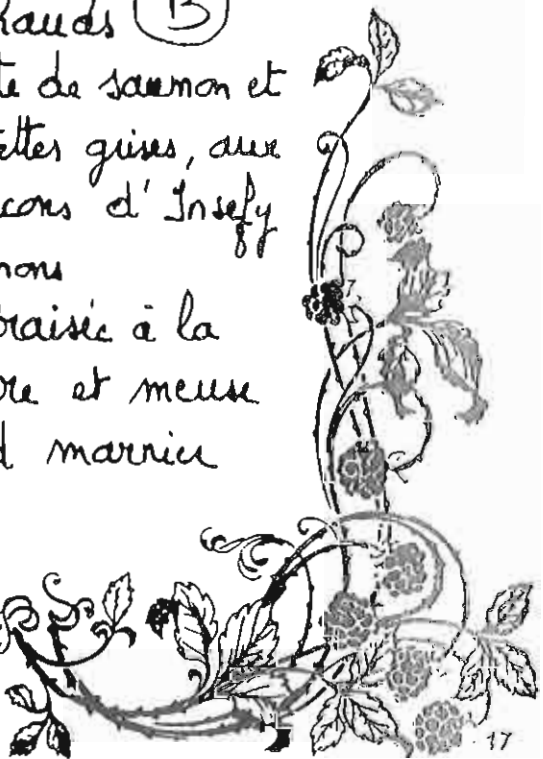 hauds B
te de saumon et
ettes grises, aux
cons d'Insefy
nons
raisée à la
re et meuse
d marnier
17